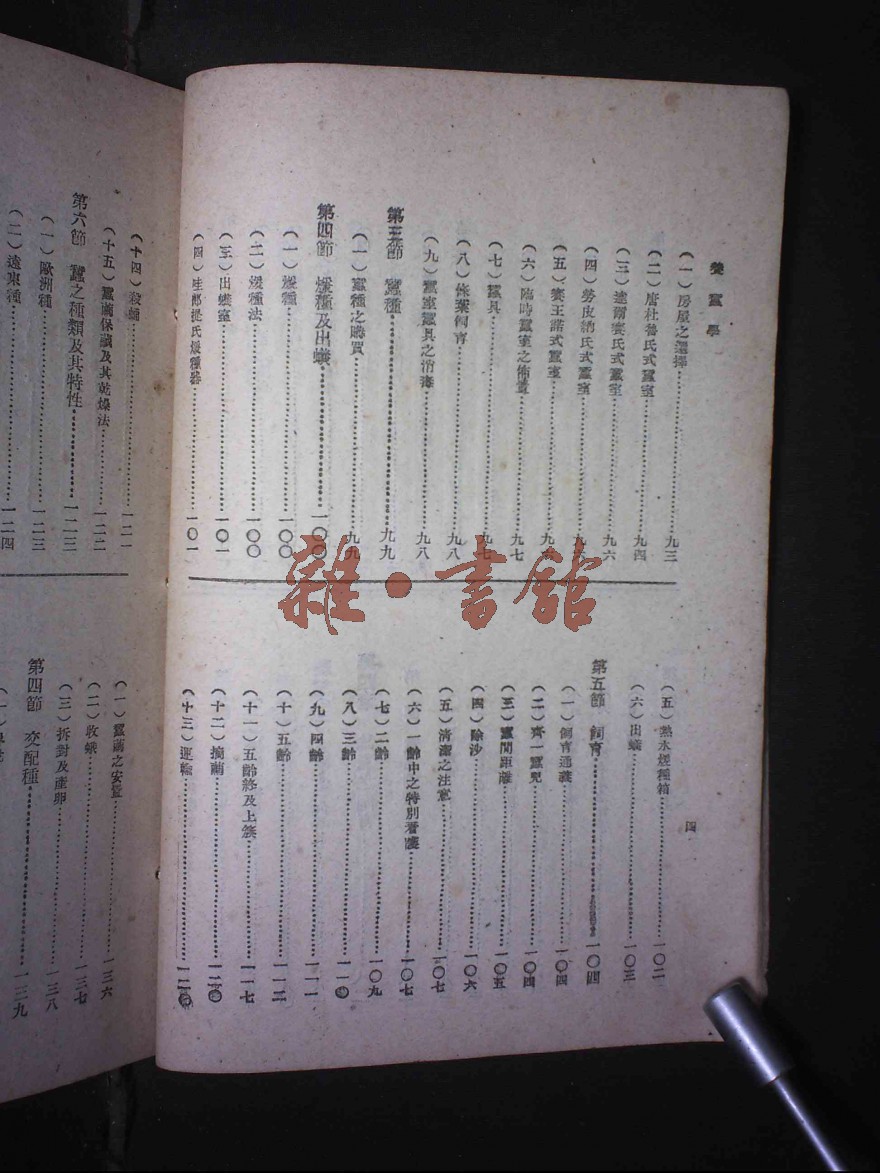 養蠶學
(一)房屋之選擇……九三
(二)唐杜魯氏式蠶室……九四
(三)達爾賽氏式蠶室……九六
(四)勞皮納氏式蠶室……九六
(五)賽王諾式蠶室……九六
(六)臨時蠶室之佈置……九七
(七)蠶具……九七
(八)條桑飼育……九八
(九)蠶室蠶具之消毒……九八
第三節 蠶種……九九
(一)蠶種之購買……九九
第四節 煖種及出蟻……一〇〇
(一)煖種……一〇〇
(二)煖種法……一〇〇
(三)出蟻室……一〇一
(四)哇郎提氏煖種器……一〇一
(五)熱水煖種箱……一〇二
(六)出蟻……一〇三
第五節 飼育……一〇四
(一)飼育通義……一〇四
(二)齊一蠶兒……一〇四
(三)蠶間距離……一〇五
(四)除沙……一〇六
(五)清潔之注意……一〇七
(六)一齡中之特別看護……一〇七
(七)二齡……一〇九
(八)三齡……一一〇
(九)四齡……一一一
(十)五齡……一一二
(十一)五齡終及上簇……一一七
(十二)摘繭……一二〇
(十三)運輸……一二〇
四
(十四)殺蛹……一二一
(十五)蠶繭保藏及其乾燥法……一二二
第六節 蠶之種類及其特性……一二三
(一)歐洲種……一二三
(二)遠東種……一二四
(一)蠶繭之安置……一三六
(二)收蛾……一三七
(三)拆對及產卵……一三八
第四節 交配種……一三九
雜·書館